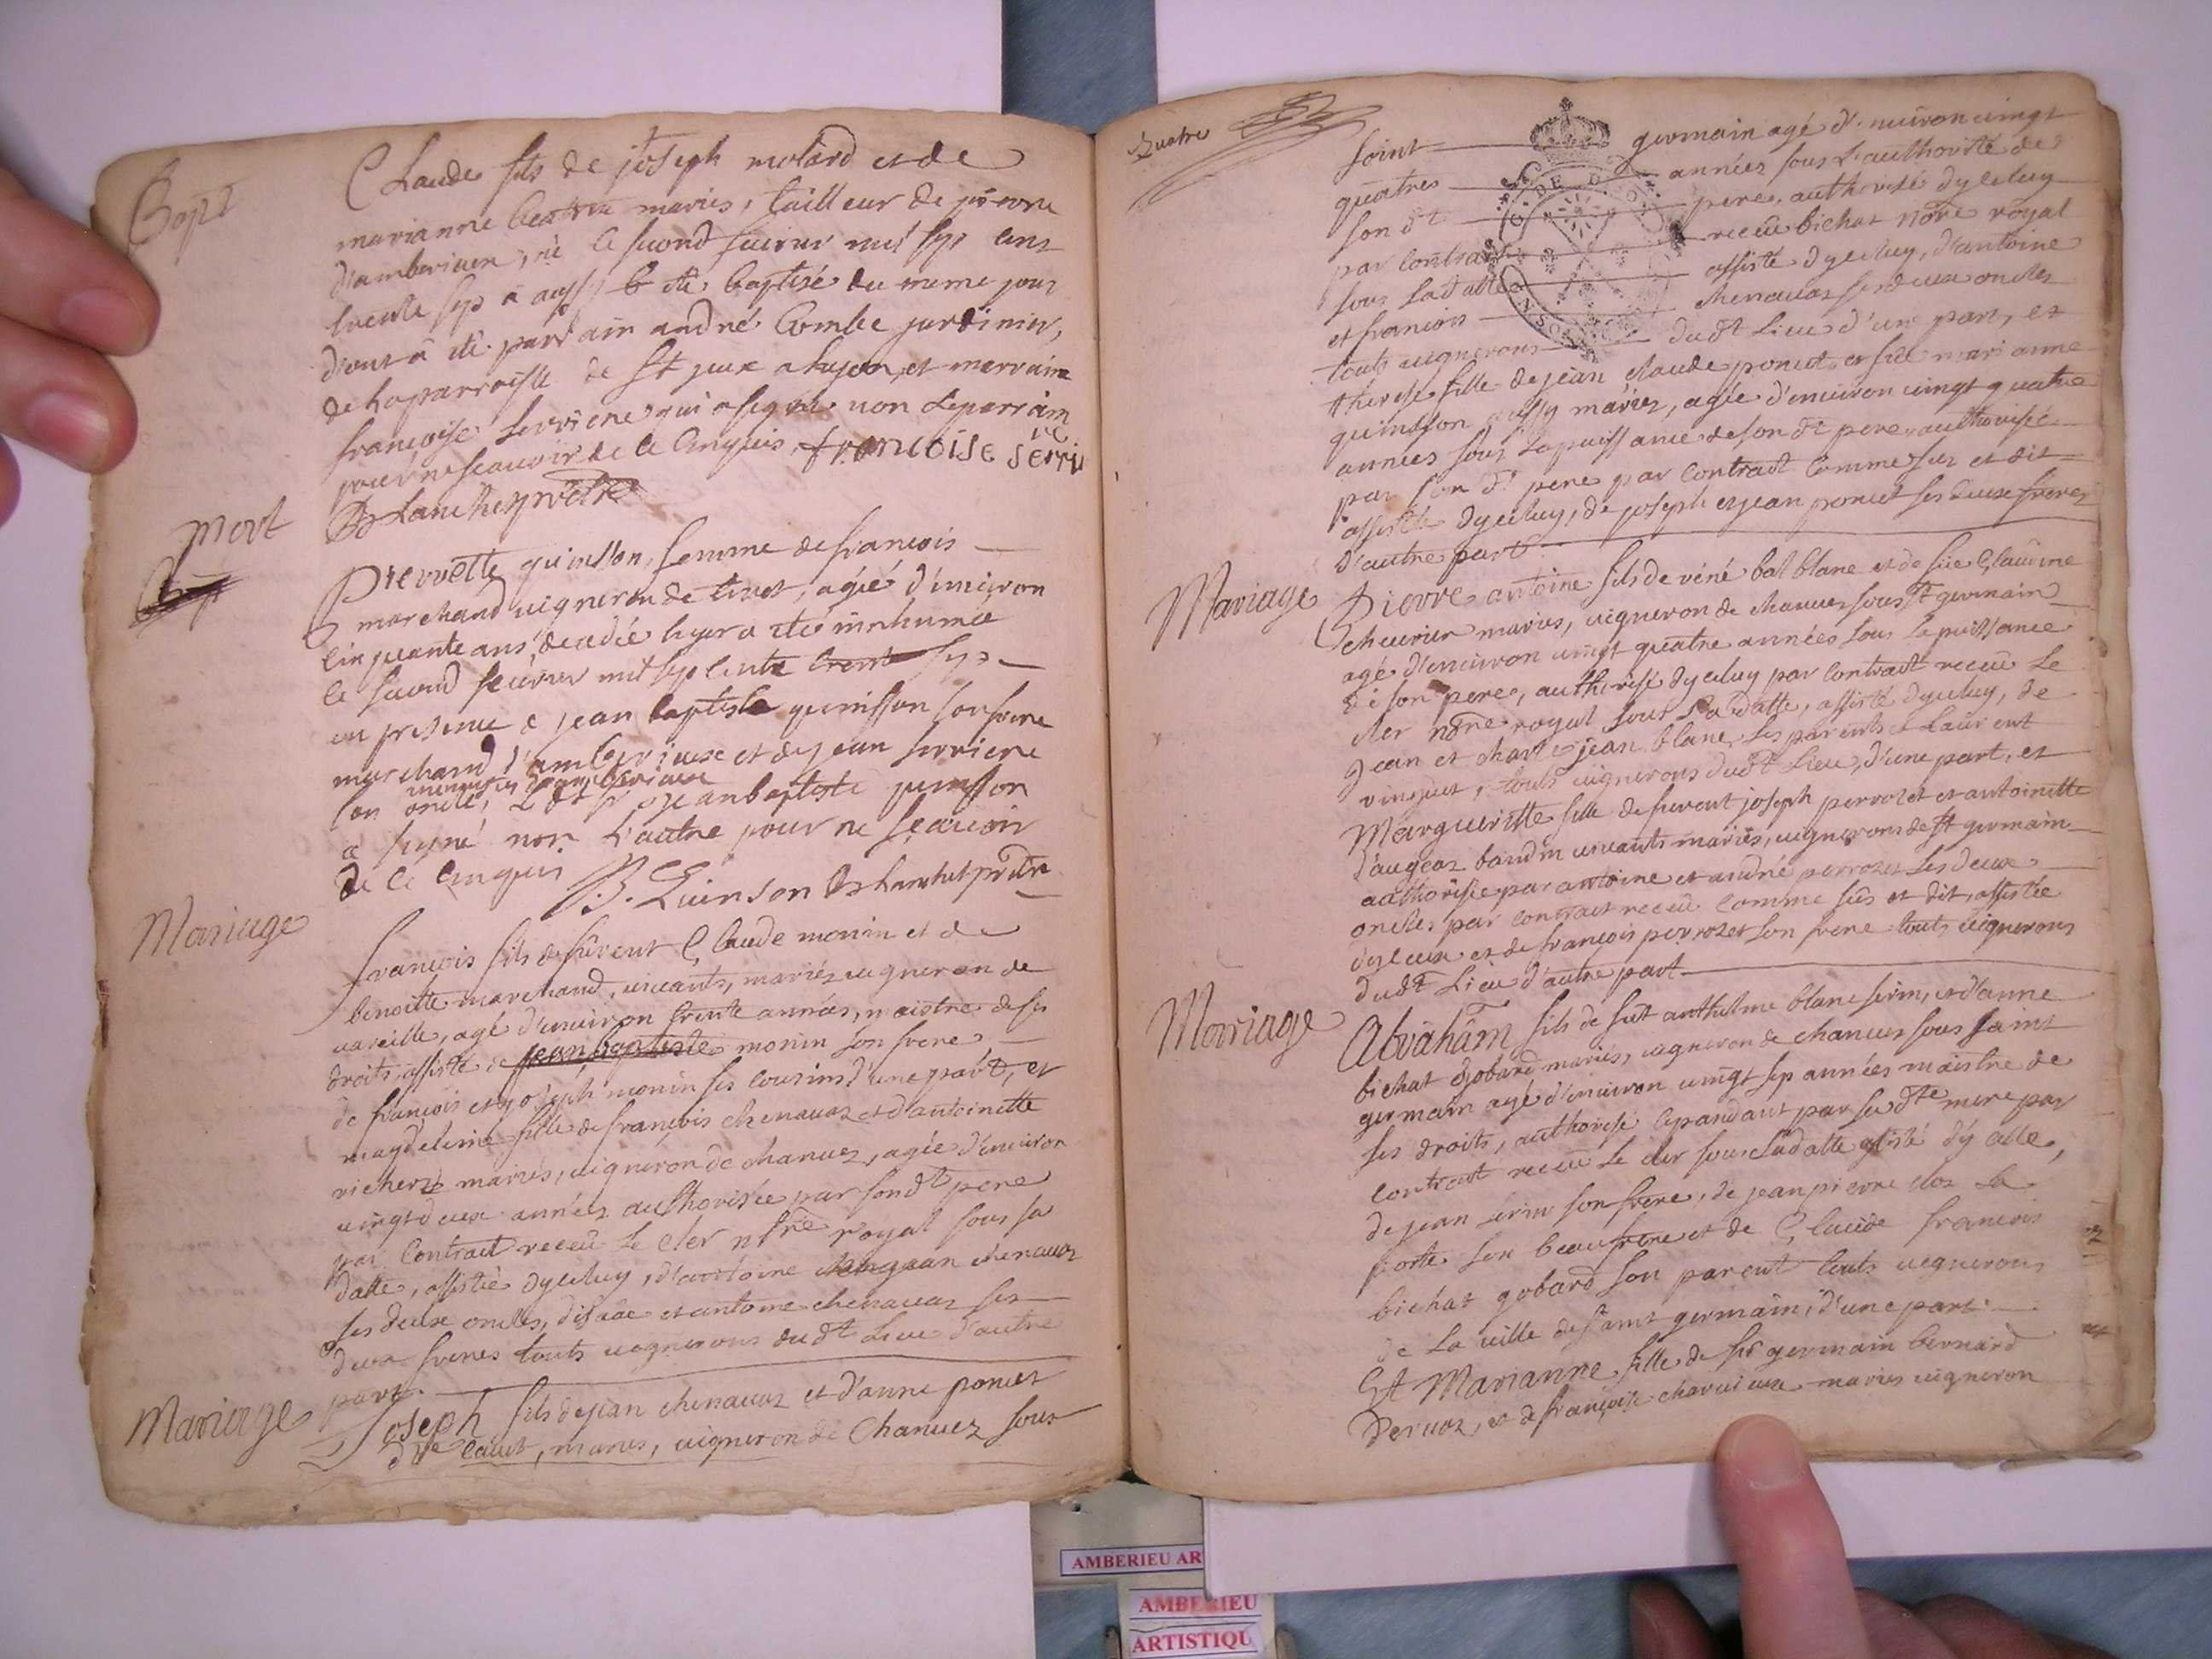 Bapt
Claude fils de joseph molard et de
marianne beatrix mariés, tailleur de pierre
d'amberieux, né le second feuvrier mil sept cent
trente sept à aussy été baptisé du meme jour
dont à eté parrain andré Combe jardinier,
de la parroisse de St jeux a lyon, et marraine
françoise serriere qui a signé non le parrain
pour ne scauoir de ce Enquis, francoise serriere
Blanchet prêtre
Mort
Pierrette quinson, femme de francois
marchand uigneron de tiret, agée d'enuiron
Cinquante ans, decedée hyer a ete inhumée
le second feuvrier mil sept cents trente sept
en presence de jean baptiste quinsson son frere
marchand d'amberieux et de jean serriere
menusier d'amberieux
son oncle, Led Sr jean baptiste quinsson
a signé non L'autre pour ne sçauoir
de ce Enquis
B. Quinson Blanchet prêtre
Mariage
françois fils de furent Claude monin et de
benoitte marchand, uiuants, mariés uigneron de
uareille, agé d'enuiron trente années, maistre de ses
droits, assisté de jean baptiste monin son frere
de françois et joseph monin ses cousins d'une part, et
magdeleine fille de françois chenauaz et d'antoinette
richerd mariés, uigneron de chanuez, agée d'enuiron
uingt deux années authorisée par son dt pere
par Contract receu le cler nre royal sous sa
datte, assistée dyceluy, d'antoine jean chenauaz
ses deux oncles, d'isâac et antoine chenauaz ses
deux freres touts uignerons dudt Lieu d'autre
part.
Mariage
Joseph fils de jean chenauaz et d'anne poncet
mariés, uigneron de Chanuez sous
Quatre
saint germain agé d'enuiron uingt
quatres années sous L'authorité de
son dt pere, authorisé dyceluy
par Contract receu bichat nore royal
sous sa datte assisté dyceluy, d'antoine
et francois chenauaz ses deux oncles
touts uignerons dudt Lieu d'une part, et
therese fille de jean claude poncet et de feue marianne
quinsson aussy mariez, agée d'enuiron uingt quatre
années sous la puissance de son dt pere, authorisée
par son dt pere par Contract Comme sus et dit
assistée dyceluy, de joseph et jean poncet ses deux freres
d'autre part
Mariage
Pierre antoine fils de réné bal blanc et de feüe Claudine
cheurier mariés, uigneron de chanues sous St germain
agé d'enuiron uingt quatre années sous la puissance
de son pere, authorisé dyceluy par contract receu le
cler nore royal sous sa datte, assisté dyceluy, de
jean et jean blanc, ses parents Laurent
vinguet, touts uignerons dudt Lieu, d'une part, et
Margueritte fille de furent joseph perrozet et antoinette
d'augeaz baudin uiuants mariés, uignerons de St germain
authorisée par antoine et andré perrozet ses deux
oncles, par contract receu comme sus et dit, assistée
dyceux et de françois perrozet son frere touts uignerons
dudt Lieu d'autre part
Mariage
Abrâhâm fils de fût anthelme blanc ferin, et d'anne
bichat gobard mariés, uigneron de chanues sous saint
germain agé d'enuiron uingt sept années maistre de
ses droits, authorisé cepandant par sa dte mere par
contract receu le cler sous sa datte assisté d'y celle,
de jean ferin son frere, de jean pierre cloz la
porte son beaufrere et de Claude francois
bichat gobard son parent touts uignerons
de la uille de saint germain, d'une part
Et Marianne fille de Sr germain bernard
Deruaz, et de françoise charuieux mariés uigneron
AMBERIEU AR
AMBERIEU
ARTISTIQU